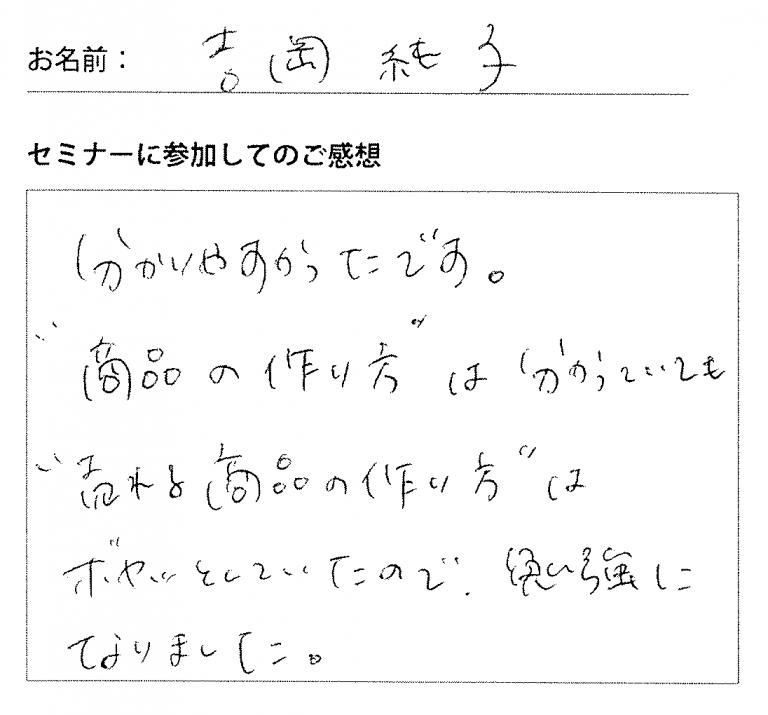 お名前： 吉岡 純子
セミナーに参加してのご感想
分かりやすかったです。
"商品の作り方"は分かっていても
"売れる商品の作り方"は
ボヤッとしていたので、勉強に
なりました。